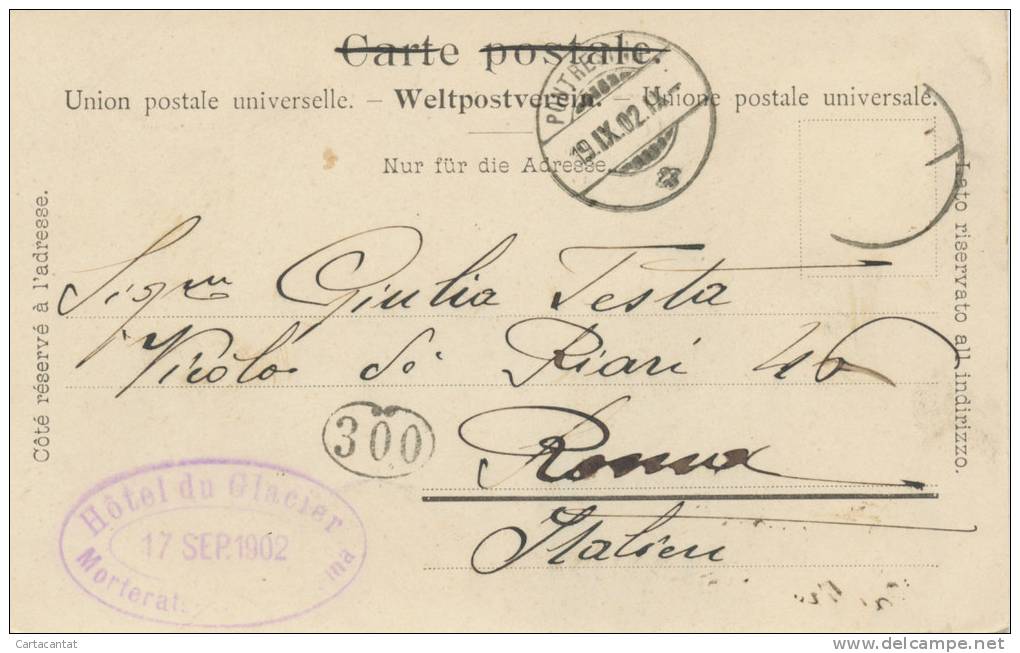 Carte postale.
Union postale universelle. – Weltpostverein. – Unione postale universale.
Nur für die Adresse.
PONTRESINA
19.IX.02.IX
Côté réservé à l'adresse.
Lato riservato all indirizzo.
Sigra Giulia Testa
Vicolo di Riari 46
Roma
Italien
300
Hôtel du Glacier
17 SEP.1902
Morterat
ina
Cartacantat
delcampe.net